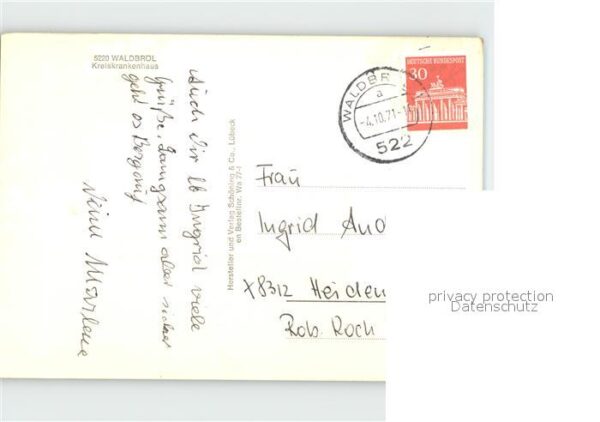 5220 WALDBRÖL
Kreiskrankenhaus
Auch Dir lb Ingrid viele
Grüße. Langsam aber sicher
geht es Bergauf
Deine Marlene
Hersteller und Verlag Schöning & Co., Lübeck
Bestellnr. Wa 77-1
DEUTSCHE BUNDESPOST
30
WALDBR
a
-4.10.71-1
522
Frau
Ingrid And
X8312 Heiden
Rob. Koch
privacy protection
Datenschutz